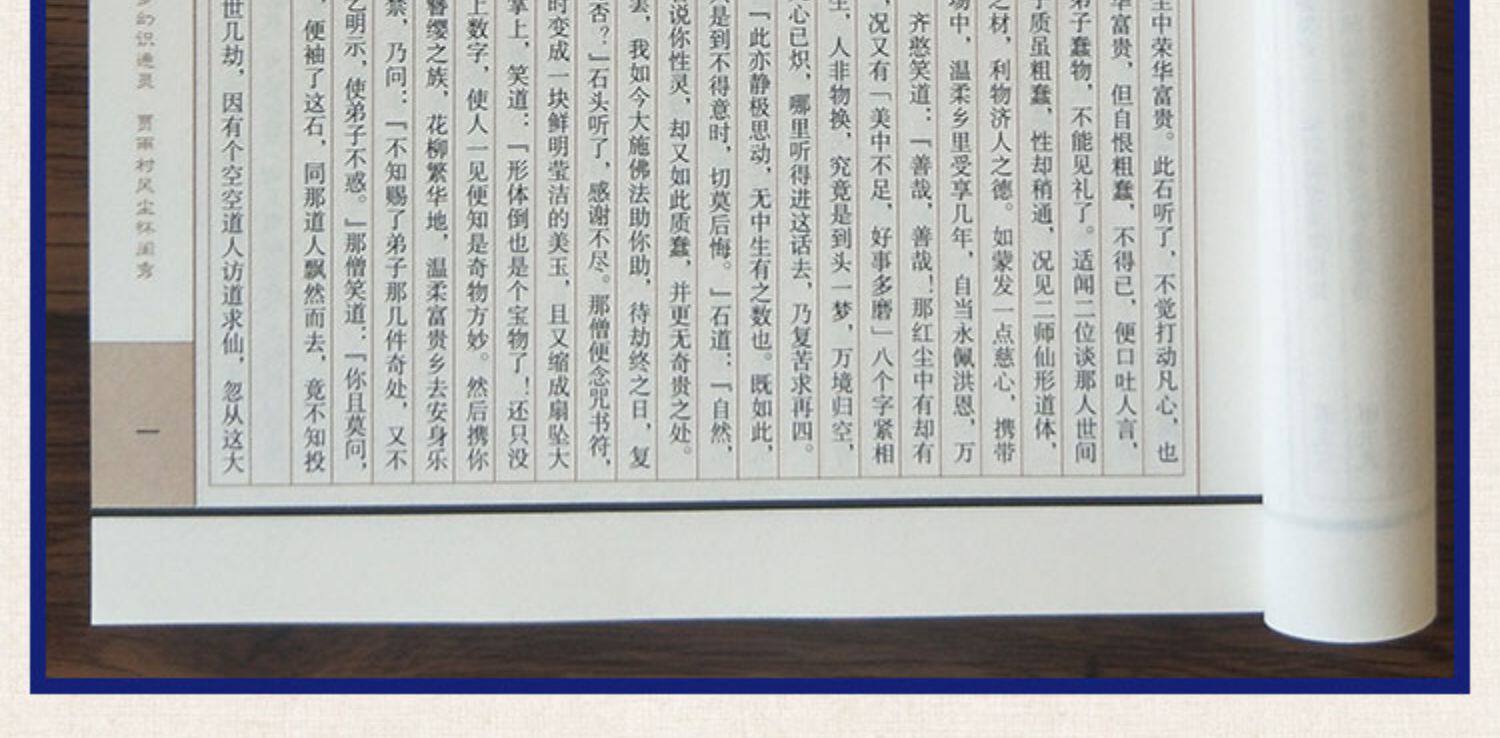 中荣华富贵。此石听了，不觉打动凡心，也
富贵，但自恨粗蠢，不得已，便口吐人言，
弟子蠢物，不能见礼了。适闻二位谈那人世间
质虽粗蠢，性却稍通，况见二师仙形道体，
之材，利物济人之德。如蒙发一点慈心，携带
场中，温柔乡里受享几年，自当永佩洪恩，万
齐憨笑道：「善哉，善哉！那红尘中有却有
，况又有「美中不足，好事多磨」八个字紧相
生，人非物换，究竟是到头一梦，万境归空，
心已炽，哪里听得进这话去，乃复苦求再四。
「此亦静极思动，无中生有之数也。既如此，
是到不得意时，切莫后悔。」石道：「自然，
说你性灵，却又如此质蠢，并更无奇贵之处。
，我如今大施佛法助你助，待劫终之日，复
否？」石头听了，感谢不尽。那僧便念咒书符，
时变成一块鲜明莹洁的美玉，且又缩成扇坠大
掌上，笑道：「形体倒也是个宝物了！还只没
上数字，使人一见便知是奇物方妙。然后携你
簪缨之族，花柳繁华地，温柔富贵乡去安身乐
禁，乃问：「不知赐了弟子那几件奇处，又不
明示，使弟子不惑。」那僧笑道：「你且莫问，
，便袖了这石，同那道人飘然而去，竟不知投
世几劫，因有个空空道人访道求仙，忽从这大
幻识通灵　贾雨村风尘怀闺秀
一